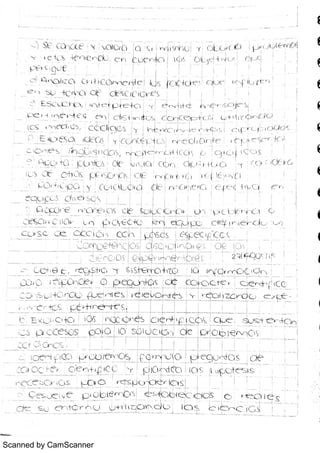 -) SE conoce y valora a si mismo y aborda problemas
y retos teniendo en cuenta los objetivos que
persigue
analiza criticamente los factores que influyen
en su toma de decisiones
- Escucha, interpreta y emite mensajes
pertinentes en distintos contextos utilizando
los medios, códigos y herramientas apropiados
- Expresa ideas y conceptos mediante
linguisticas, matemáticas o graficas
puntos de vista con apertura y
de otras personas de manera
Participa y colabora de manera efectiva en
equipos diversos
- Propone maneras de solucionar un problema o
desarrollar un proyecto en equipo definiendo un
curso de acción con pasos especificos
Competencias disciplinares de las
ciencias experimentales
- registra y sistematiza la información
para responder a preguntas de caracter científico
fuentes relevantes y realizando expe-
rimentos pertinentes.
las nociones cientificas que sustentan
los procesos para la solución de problemas
- identifica problemas, formula preguntas de
caracter cientifico y plantea las hipotesis
necesarias para responderlas
- Resuelve problemas establecidos o reales
de su entorno utilizando las ciencias
Scanned by CamScanner